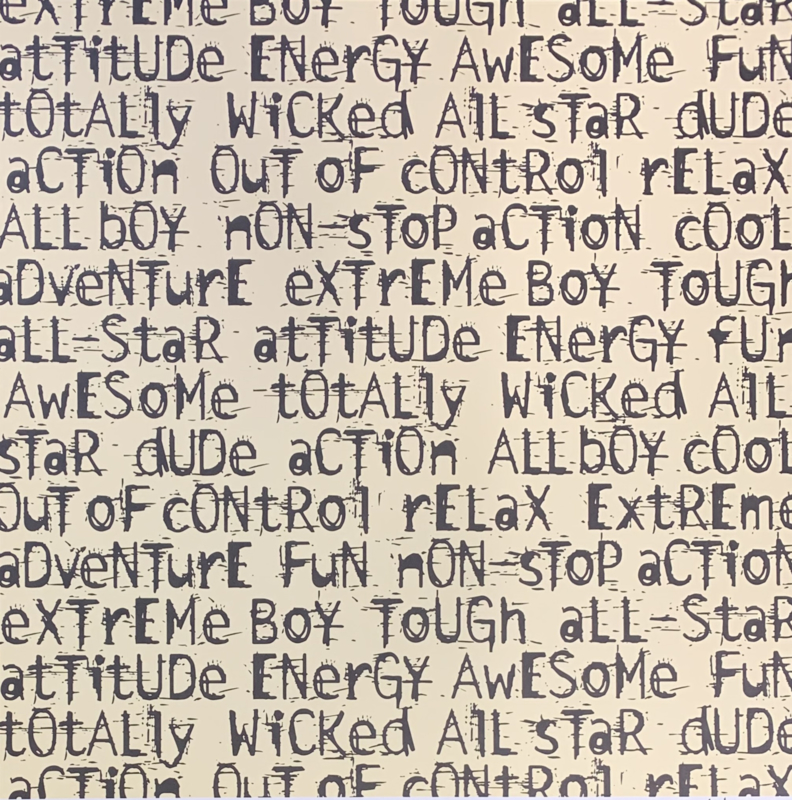 eXTrEMe BoY ToUGh aLL-StaR
atTitUDe ENerGY AwESoMe FuN
tOtALly WiCKed AlL sTaR dUDe
aCTiOn OuT oF cONtRol rELaX
ALL bOY nON-sToP aCTioN cOoL
aDveNTurE eXTrEMe BoY ToUGh
aLL-StaR atTitUDe ENerGY fUn
AwESoMe tOtALly WiCKed AlL
sTaR dUDe aCTiOn ALL bOY cOoL
OuT oF cONtRol rELaX ExtREme
aDveNTurE FuN nON-sToP aCTioN
eXTrEMe BoY ToUGh aLL-StaR
atTitUDe ENerGY AwESoMe FuN
tOtALly WiCKed AlL sTaR dUDe
aCTiOn OuT oF cONtRol rELaX